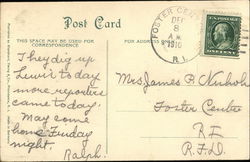 Post Card
THIS SPACE MAY BE USED FOR
CORRESPONDENCE
FOR ADDRESS
FOSTER CENTER
DEC
8
A.M.
1910
R.I.
They dig up
Lewis today
more reporters
came today.
May some
home Friday
night.
Ralph.
Mrs James B Nichols
Foster Centre
R I
R.F.D.